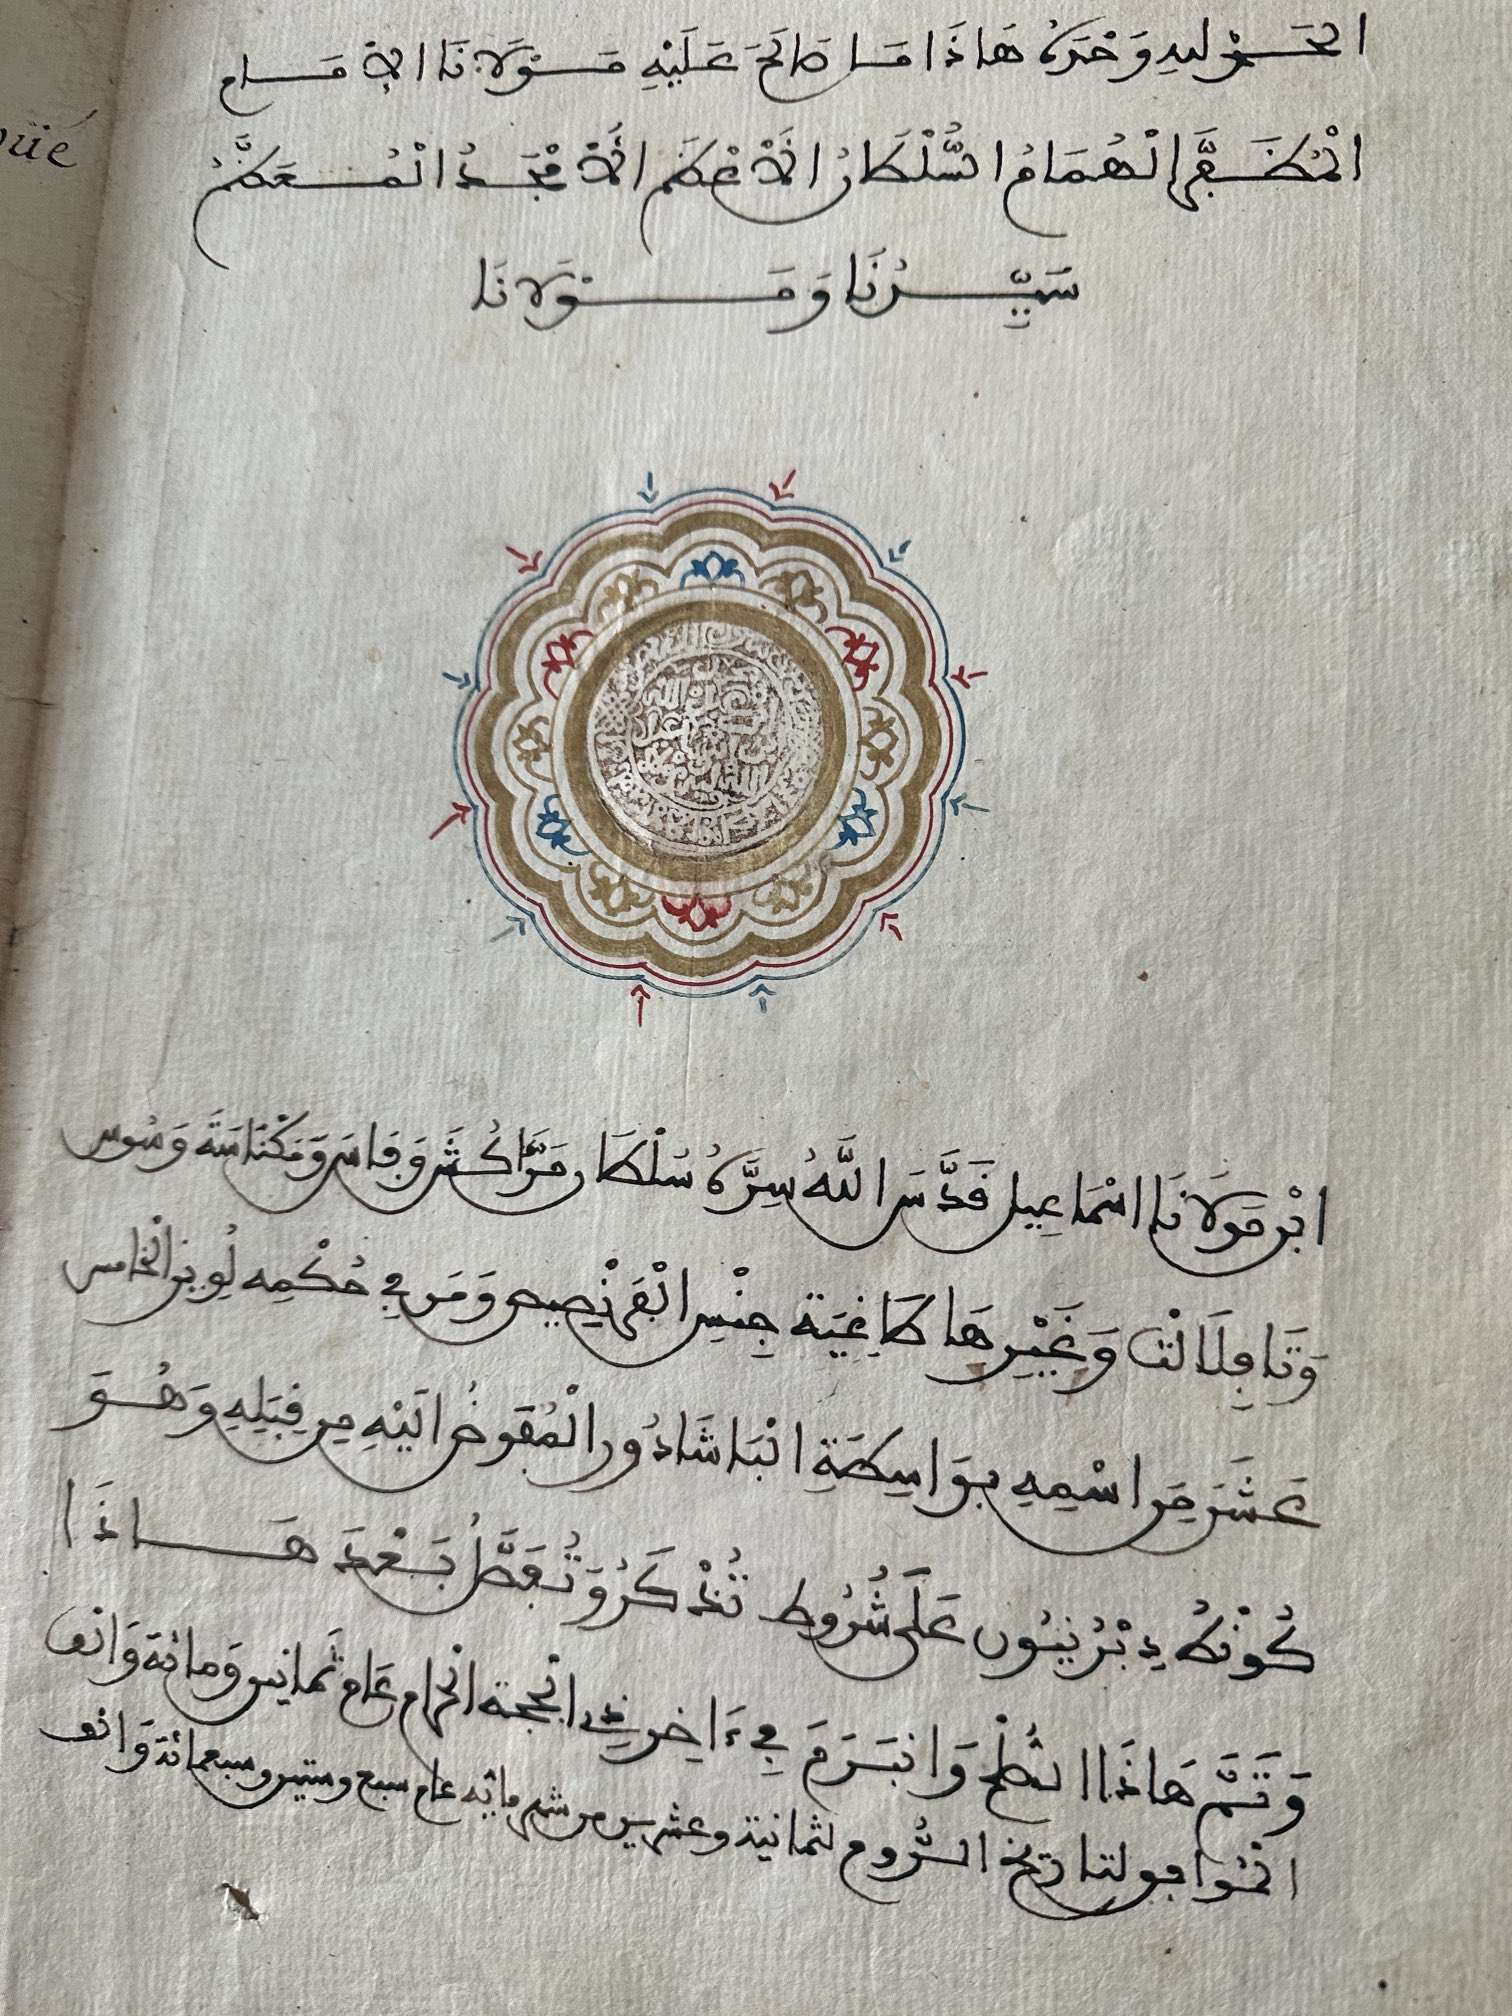 üé
الحمد لله وَحْدَهُ هَاذَا مَا صَالَحَ عَلَيْهِ مَوْلَانَا الإمَام
الْمُظَفَّر الْهُمَامُ السُّلْطَانُ الأَعْظَم الأَمْجَدُ الْمُعَظَّمُ
سَيِّدُنَا وَمَوْلَانَا
ابْن مَوْلَانَا اسْمَاعِيل قَدَّسَ اللَّهُ سِرَّهُ سُلْطَان مَرَّاكُش وَفَاس وَمَكْنَاسَة وَسُوس
وَتَافِلَالْت وَغَيْرِهَا طَاغِيَة جِنْسِ الْفَرَنْصِيص وَمَن فِي حُكْمِه لُوِيز الْخَامس
عَشَرَ مِنَ اسْمِهِ بوَاسِطَةِ الْبَاشَادُور الْمُفَوض الَيْهِ مِن قِبَلِهِ وَهُوَ
كُونْطُ دِبْرُنيُون عَلَى شُرُوط تُذْكَرُ وَتُفَصَّلُ بَعْدَ هَاذَا
وَتَمَّ هَاذَا الصُّلْحُ وَانبَرَمَ فِي ءَاخِر ذِي الْحجة الحرام عَام ثَمانين وَمائة وَالف
المُوَافِو لتاريخ الرُّوم لثمانية وعشرين من شهر مايه عام سبع وستين وسبعمائة وَالف